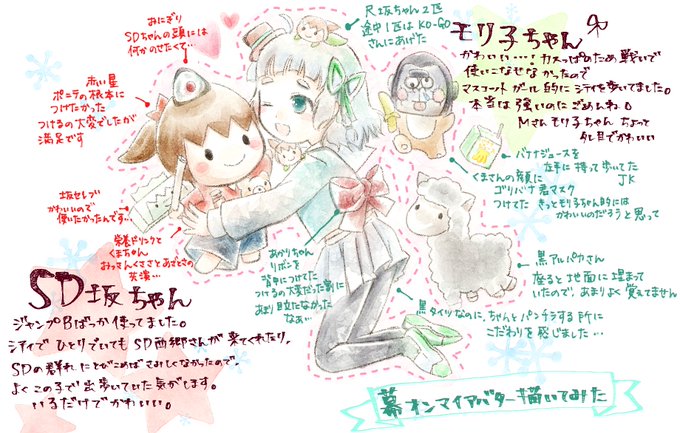 おにぎり
SDちゃんの頭には
何かのせたくて…
尺坂ちゃん2匹
途中1匹はKO-GO
さんにあげた
モリ子ちゃん
かわいい…！カスっぱのため戦いで
使いこなせなかったので
マスコットガール的にシティを歩いてました。
本当は強いのにごめんね。
Mさんモリ子ちゃん ちょっと
タレ目でかわいい
赤い星
ポニテの根本に
つけたかった
つけるの大変でしたが
満足です
バナナジュースを
左手に持って歩いてた
JK
くまさんの顔に
ゴリバナ君マスク
つけてた きっとモリ子ちゃん的には
かわいいのだろうと思って
坂セレブ
かわいいので
使いたかったんです…
栄養ドリンクと
くまちゃん
おっさんくささとあざとさの
共演…
あかりちゃん
リボンを
背中につけてた
つけるの大変だった割に
あまり目立たなかった
なぁ…
黒アルパカさん
座ると地面に埋まって
いたので、あまりよく覚えてません
黒タイツなのに、ちゃんとパンチラする所に
こだわりを感じました…
SD坂ちゃん
ジャンプBばっか使ってました。
シティでひとりでいてもSD西郷さんが来てくれたり、
SDの群れにとびこめばさみしくなかったので、
よくこの子で出歩いていた気がします。
いるだけでかわいい。
幕オンマイアバター描いてみた